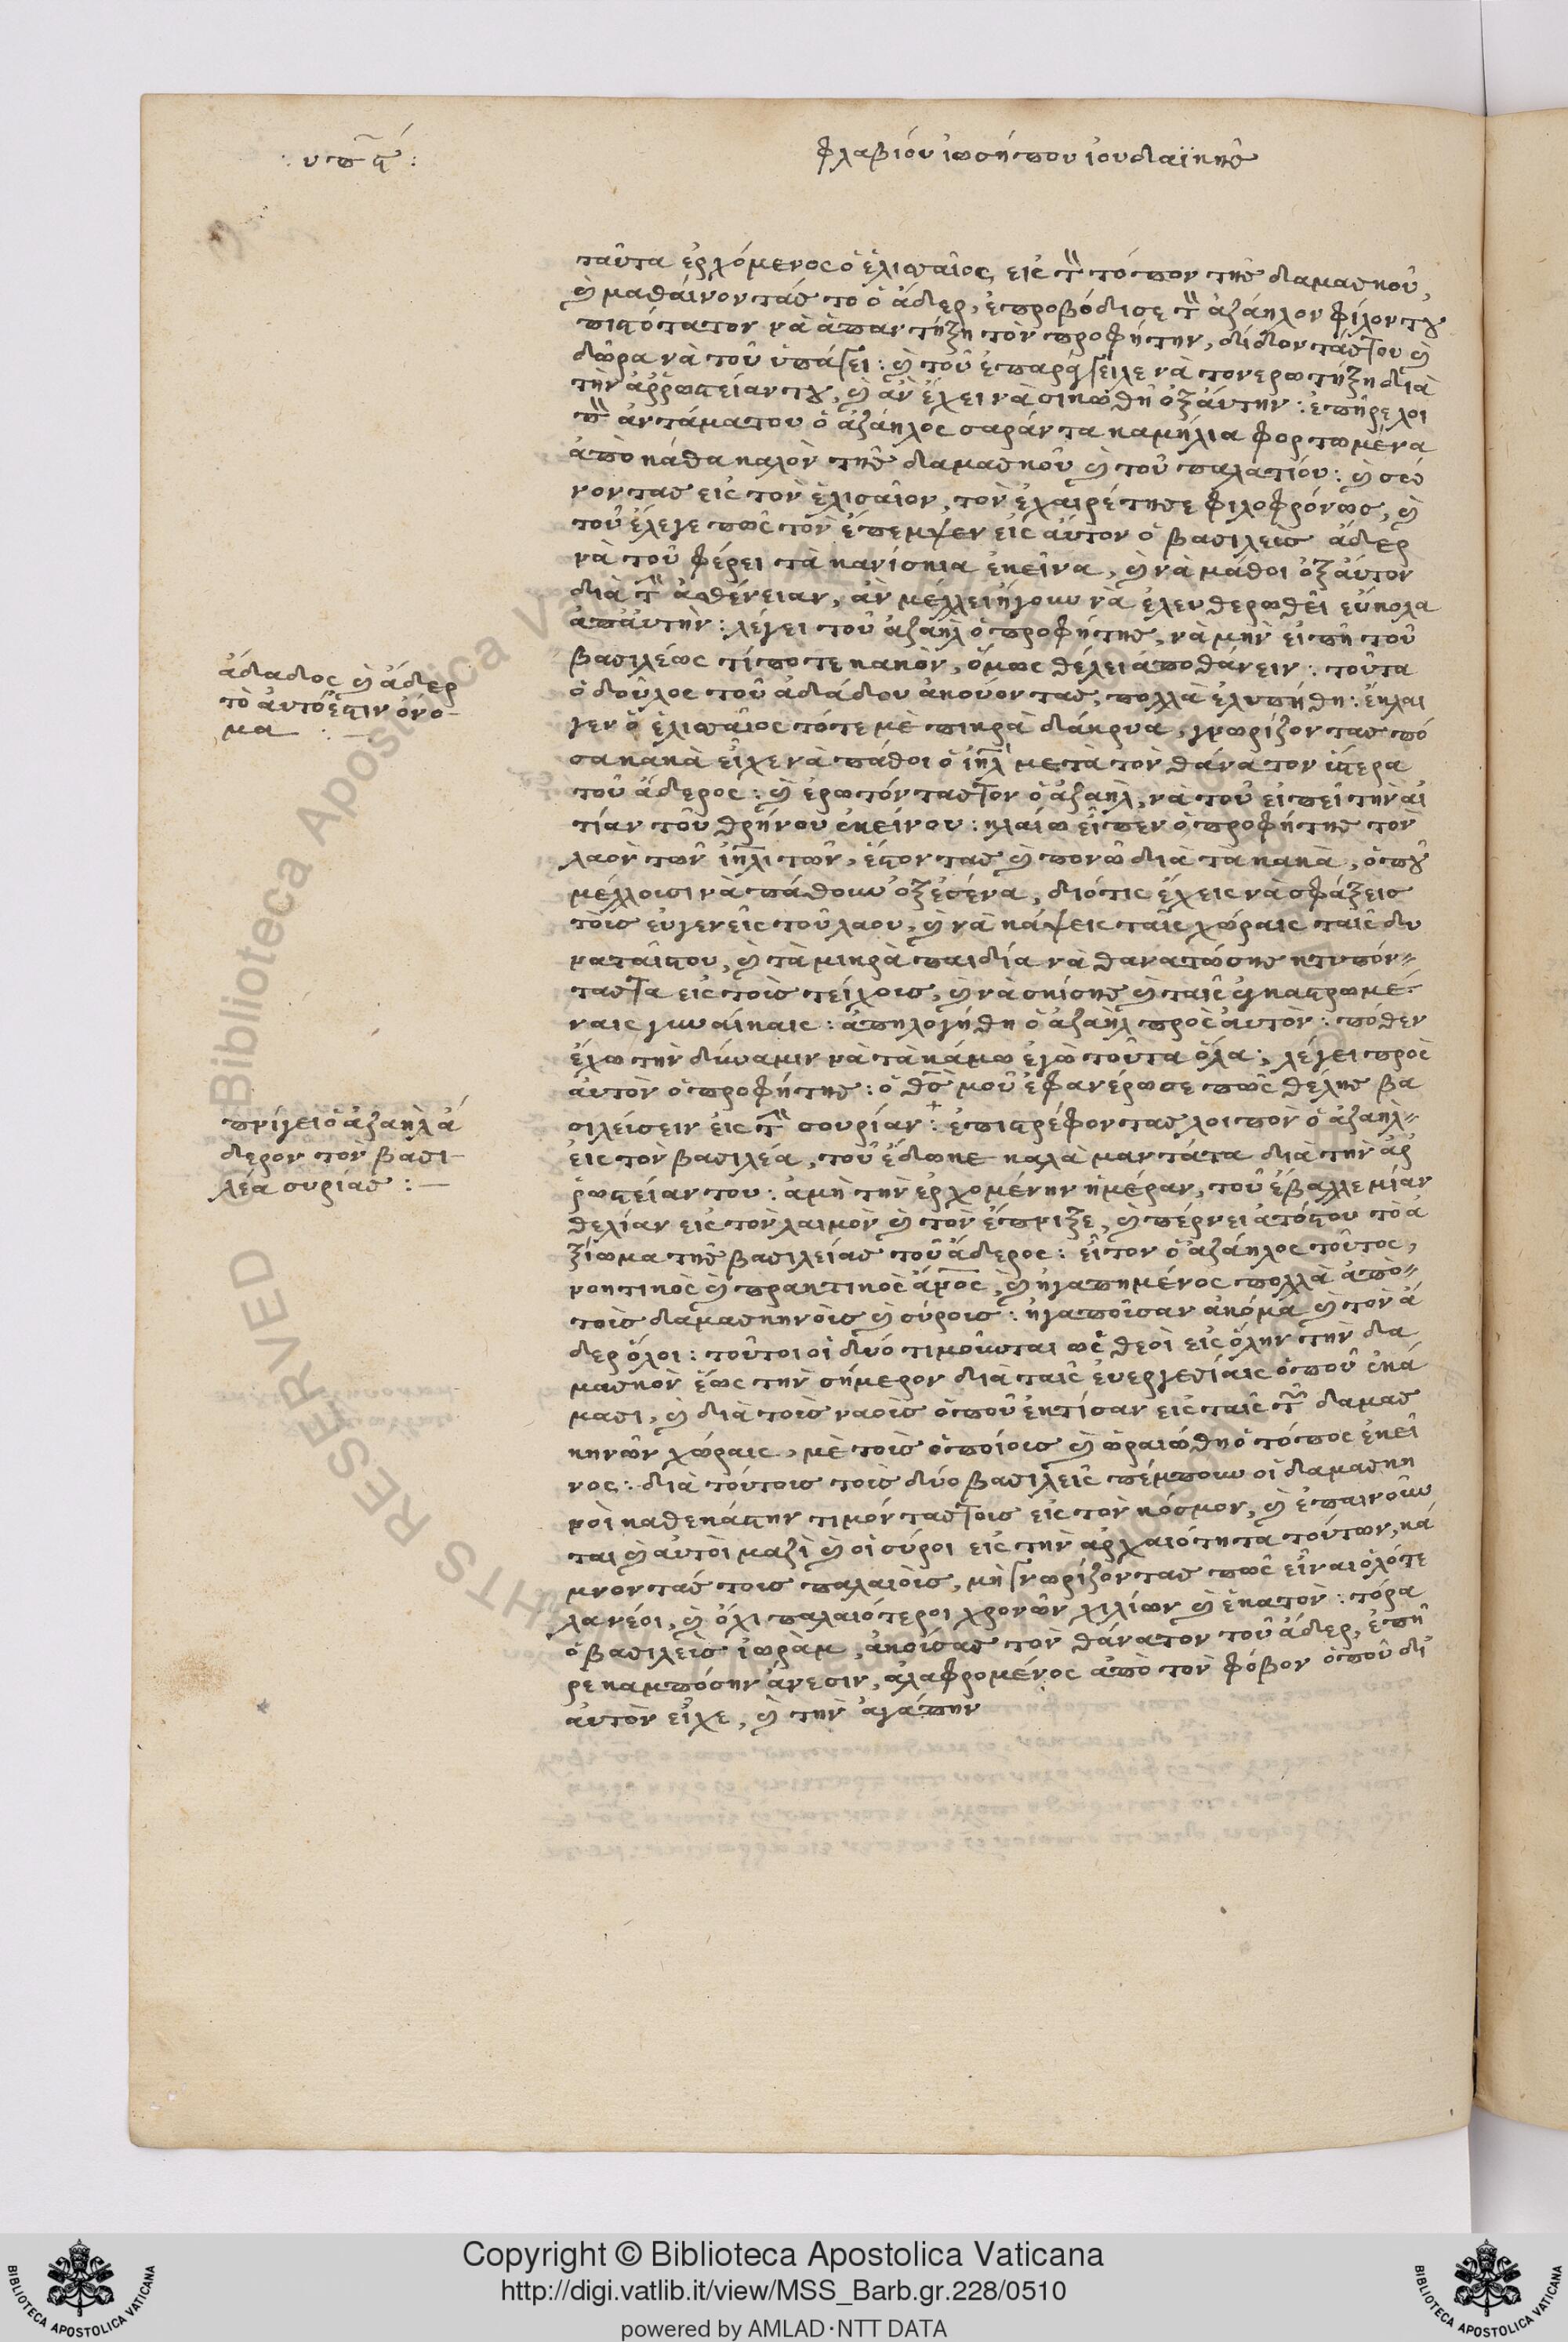 : υπϛ :
φλαβίου ἰωσήπου ἰουδαϊκῆς
ταῦτα ἐρχόμενος ὁ ἐλισσαῖος, εἰς τὸν τόπον τῆς δαμασκοῦ,
καὶ μαθαίνοντάς το ὁ ἄδερ, ἐπροβόδισε τὸν ἀζάηλον φίλον του
πιστότατον νὰ ἀπαντήξη τὸν προφήτην, δίδοντάς του καὶ
δῶρα νὰ τοῦ ὑπάγει: καὶ τοῦ ἐπαράγγειλε νὰ τον ερωτήξη διὰ
τὴν ἀῤῥωστείαν του, καὶ ἂν ἔχει νὰ σηκωθῆ ὀξ' αὐτήν: ἐπῆρε λοι
πὸν ἀντάματου ὁ ἀζάηλος σαράντα καμήλια φορτωμένα
ἀπὸ κάθα καλὸν τῆς δαμασκοῦ καὶ τοῦ παλατίου: καὶ σώ
νοντας εἰς τὸν ἐλισαῖον, τὸν ἐχαιρέτησε φιλοφρόνως, καὶ
τοῦ ἔλεγε πῶς τὸν ἔπεμψεν εἰς αὐτον ὁ βασιλεὶς ἄδερ
νὰ τοῦ φέρει τὰ κανίσκια ἐκεῖνα, καὶ νὰ μάθοι ὀξ' αὐτον
διὰ τὴν ἀσθένειαν, ἂν μέλλει ἤγουν νὰ ἐλευθερωθεῖ εὔκολα
ἀπ' αὐτήν: λέγει τοῦ ἀζαὴλ ὁ προφήτης, νὰ μὴν εἰπῆ τοῦ
βασιλέως τίποτε κακὸν, ὅμως θέλει ἀποθάνειν: τοῦτα
ὁ δοῦλος τοῦ ἀδάδου ἀκούοντας, πολλὰ ἐλυπήθη: ἔκλαι
γεν ὁ ἐλισσαῖος τότε μὲ πικρὰ δάκρυα, γνωρίζοντας πό
σα κακὰ εἶχε νὰ πάθοι ὁ ἰηλ μετὰ τὸν θάνατον ὕστερα
τοῦ ἄδερος: καὶ ἐρωτόντας τον ὁ ἀζαὴλ, νὰ τοῦ εἰπεῖ τὴν αἰ
τίαν τοῦ θρήνου ἐκείνου: κλαίω εἶπεν ὁ προφήτης τὸν
λαὸν τῶν ἰηλιτῶν, ἔστοντας καὶ πονῶ διὰ τὰ κακὰ, ὁποῦ
μέλλουσι νὰ πάθουν ὀξ' ἐσένα, διότις ἔχεις νὰ σφάξεις
τοὶς εὐγενεῖς τοῦ λαου, καὶ νὰ κάψεις ταῖς χώραις ταῖς δυ
ναταῖς του, καὶ τὰ μικρὰ παιδία νὰ θανατώσης κτυπόν-
τας τα εἰς τοὶς τείχοις, καὶ νὰ σκίσης καὶ ταῖς ἐγκαστρωμέ-
ναις γυναίκαις: ἀπηλογήθη ὁ ἀζαὴλ πρὸς αὐτὸν: πόθεν
ἔχω τὴν δύναμιν νὰ τὰ κάμω ἐγὼ τοῦτα ὅλα:, λέγει πρὸς
αὐτὸν ὁ προφήτης: ὁ θς μοῦ ἐφανέρωσε πῶς θέλης βα
σιλείσειν εἰς τὴν σουρίαν: ἐπιστρέφοντας λοιπὸν ὁ ἀζαὴλ
εἰς τὸν βασιλέα, τοῦ ἔδωκε καλὰ μαντάτα διὰ τὴν ἀῤ
ῥωστείαν του: ἀμὴ τὴν ἐρχομένην ἡμέραν, τοῦ ἔβαλλε μίαν
θελίαν εἰς τὸν λαιμὸν καὶ τὸν ἔπνιξε, καὶ πέρνει ἀτόςτου τὸ ἀ
ξίωμα τῆς βασιλείας τοῦ ἄδερος: εἶτον ὁ ἀζάηλος τοῦτος,
νοητικὸς καὶ πρακτικὸς ἄνος, καὶ ἠγαπημένος πολλὰ ἀπο-
τοὶς δαμασκηνοὶς καὶ σύροις: ἠγαποῦσαν ἀκόμα καὶ τὸν ἄ
δερ ὅλοι: τοῦτοι οἱ δυό τιμοῦνται ὡς θεοὶ εἰς ὅλην τὴν δα
μασκὸν ἕως τὴν σήμερον διὰ ταῖς ἐυεργεσίαις ὁποῦ ἐκά
μασι, καὶ διὰ τοὶς ναοὶς ὁποῦ ἐκτίσαν εἰς ταῖς τῶν δαμασ
κηνῶν χώραις, μὲ τοὶς ὁποίοις καὶ ὡραιώθη ὁ τόπος ἐκεῖ
νος: διὰ τούτοις τοὶς δύο βασιλεῖς πέμπουν οἱ δαμασκη
νοὶ καθεκάστην τιμόντας τοις εἰς τὸν κόσμον, καὶ ἐπαινοῦν
ται καὶ αὐτοὶ μαζὶ καὶ οἱ σύροι εἰς τὴν ἀρχαιότητα τούτων, κά
μνοντάς τοις παλαιοὶς, μὴ γνωρίζοντας πῶς εἶναι ὁλότε
λα νέοι, καὶ ὄχι παλαιότεροι χρονῶν χιλίων καὶ ἑκατὸν: τόρα
ὁ βασιλεὶς ἰωρὰμ, ἀκούσας τὸν θάνατον τοῦ ἄδερ, ἐπῆ
ρε καμπόσην ἄνεσιν, ἀλαφρομένος ἀπὸ τὸν φόβον ὁποῦ δι'
αὐτὸν εἶχε, καὶ τὴν ἀγάπην
ἄδαδος καὶ ἄδερ
τὸ ἀυτὸ ἔστιν ὄνο-
μα :—
πνίγει ὁ ἀζαὴλ ἄ
δερον τὸν βασι-
λέα συρίας :—
Copyright © Biblioteca Apostolica Vaticana
http://digi.vatlib.it/view/MSS_Barb.gr.228/0510
powered by AMLAD·NTT DATA
BIBLIOTECA APOSTOLICA VATICANA
BIBLIOTECA APOSTOLICA VATICANA